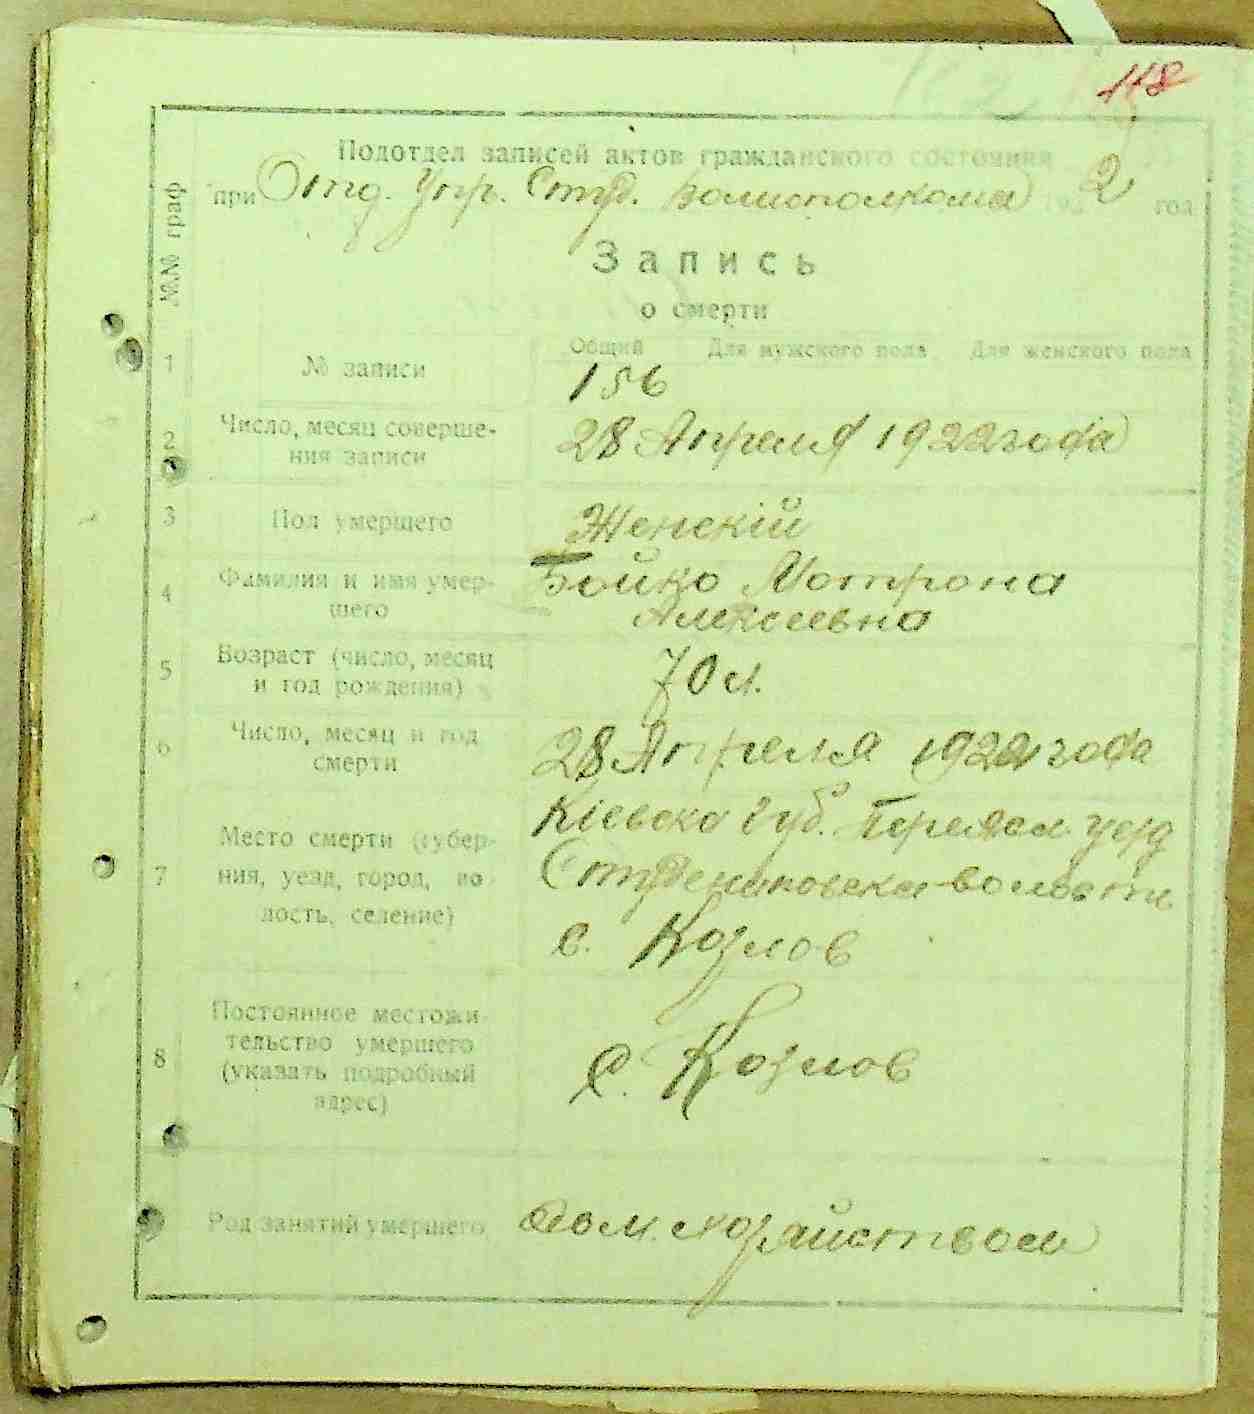 118
Подотдел записей актов гражданского состояния
при Отд. Упр. Студ. Волисполкома 192 2 год
№№ граф
Запись
о смерти
Общий Для мужского пола Для женского пола
1 № записи 156
2 Число, месяц соверше- 28 Апреля 1922 года
ния записи
3 Пол умершего Женскій
4 Фамилия и имя умер- Бойко Мотрона
шего Алексеевна
5 Возраст (число, месяц 70 л.
и год рождения)
6 Число, месяц и год 28 Апреля 1922 года
смерти
Кіевско губ. Переясл. уезд
7 Место смерти (губер-
ния, уезд, город, во- Студениковска волость
лость, селение) с. Козлов
8 Постоянное местожи-
тельство умершего с. Козлов
(указать подробный
адрес)
Род занятий умершего Дом. хозяйством